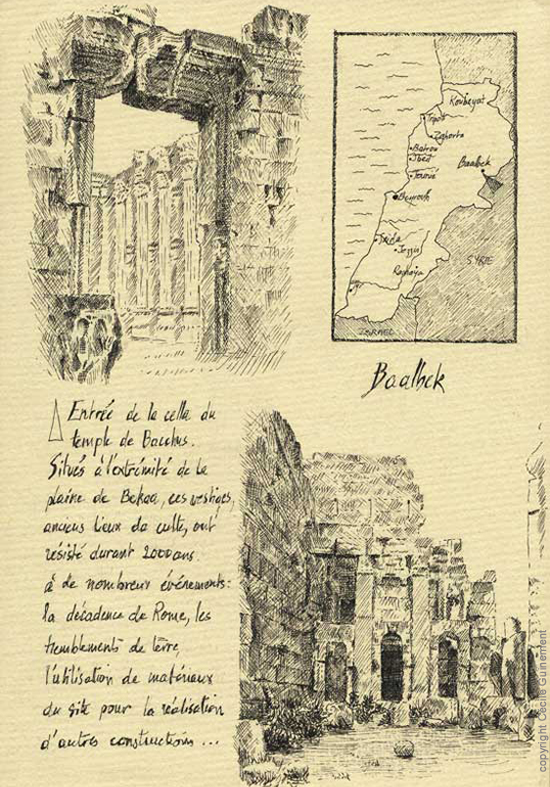 Koubayat
Tripoli
Zghorta
Batrou
Jbeil
Baalbek
Jounié
Beyrouth
Saïda
Jezzin
Rachaiya
SYRIE
ISRAEL
Baalbek
Entrée de la cella du
temple de Bacchus.
Situés à l'extrémité de la
plaine de Bekaa, ces vestiges,
anciens lieux de culte, ont
résisté durant 2000 ans
à de nombreux événements :
la décadence de Rome, les
tremblements de terre,
l'utilisation de matériaux
du site pour la réalisation
d'autres constructions ...
copyright Cécile Guinement